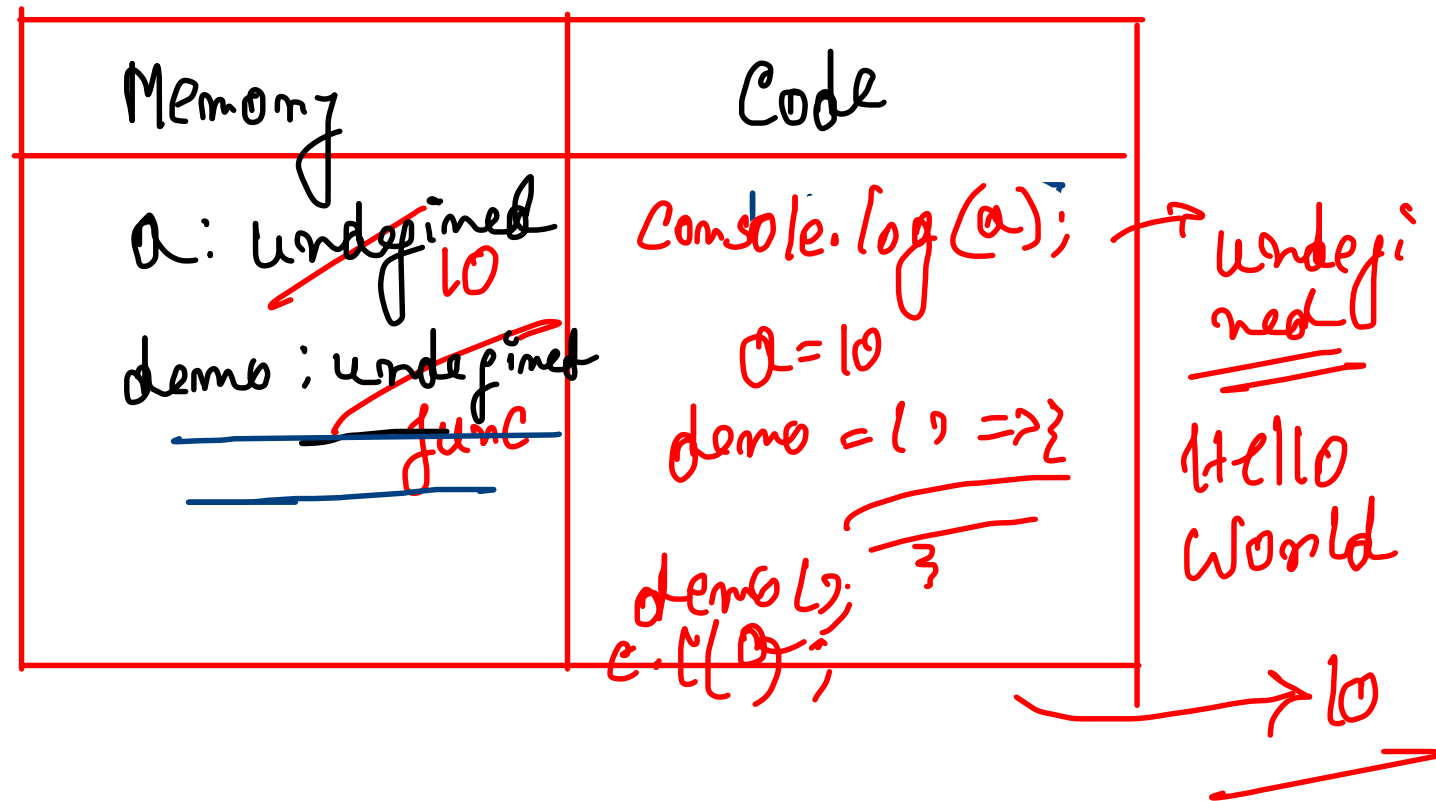 Memory
Code
a: undefined
10
demo: undefined
func
console.log(a);
a=10
demo = () =>{
}
demo();
c.l(a);
undefi
ned
Hello
World
10